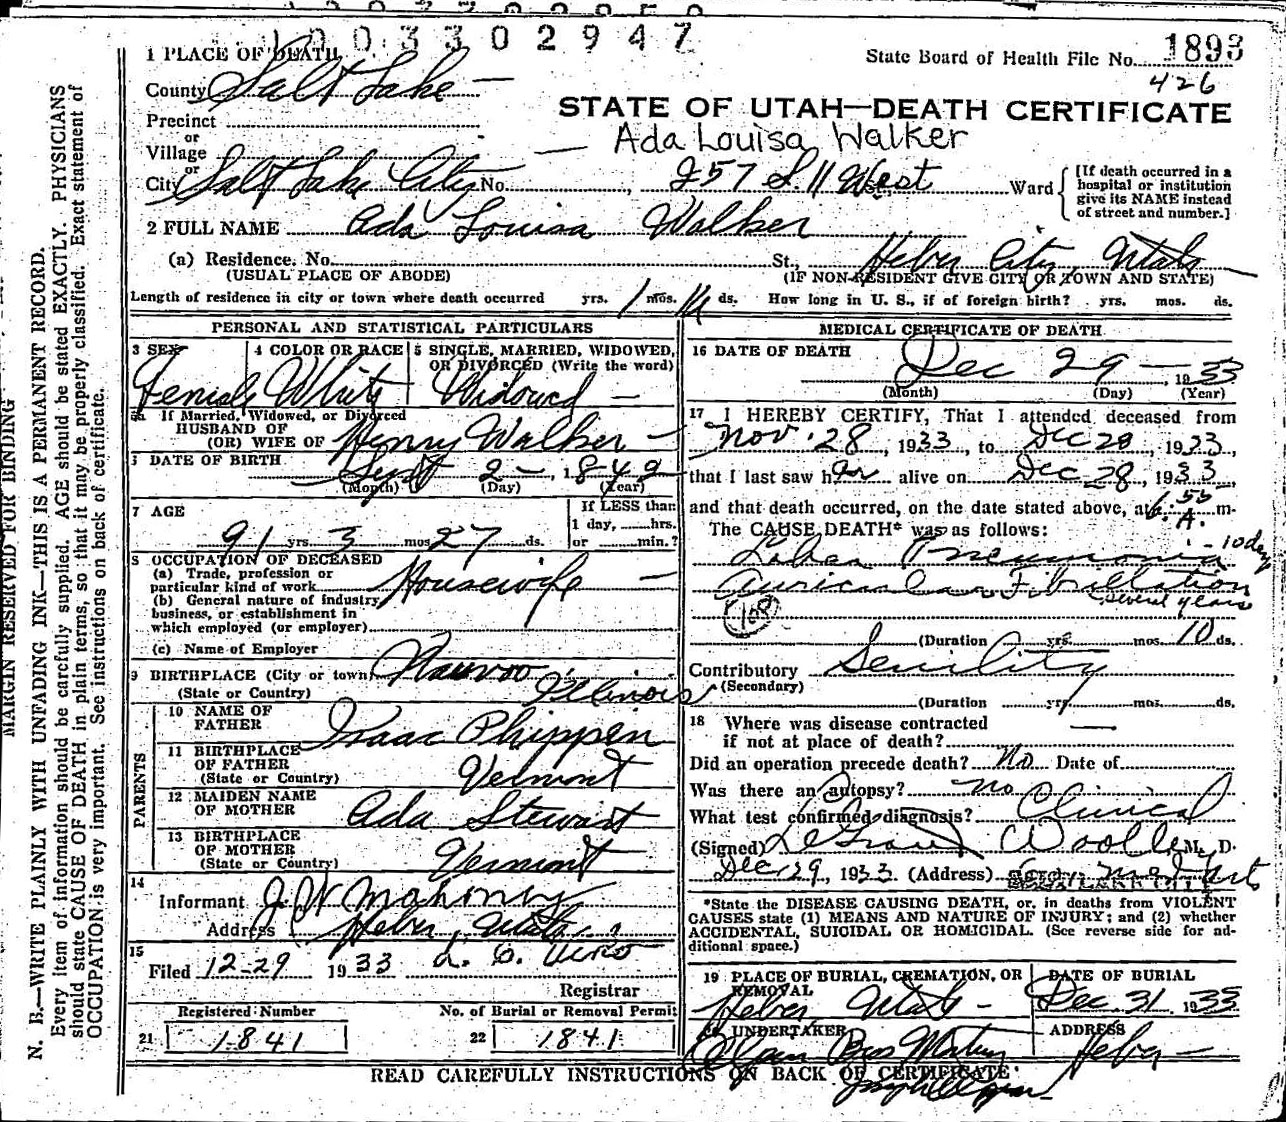 1003302947
1 PLACE OF DEATH
State Board of Health File No. 1893
426
County Salt Lake
STATE OF UTAH—DEATH CERTIFICATE
Precinct
or
Ada Louisa Walker
Village
or
City Salt Lake City No. , 257 S. 11 West Ward
[If death occurred in a hospital or institution give its NAME instead of street and number.]
2 FULL NAME Ada Louisa Walker
(a) Residence. No. St., Heber City, Utah
(USUAL PLACE OF ABODE) (IF NON-RESIDENT GIVE CITY OR TOWN AND STATE)
Length of residence in city or town where death occurred yrs. 1 mos. ds. How long in U. S., if of foreign birth? yrs. mos. ds.
PERSONAL AND STATISTICAL PARTICULARS
3 SEX Female
4 COLOR OR RACE White
5 SINGLE, MARRIED, WIDOWED, OR DIVORCED (Write the word) Widowed
5a If Married, Widowed, or Divorced
HUSBAND OF
(OR) WIFE OF Henry Walker
6 DATE OF BIRTH Sept 2 - 1842
(Month) (Day) (Year)
7 AGE
If LESS than
1 day, hrs.
or min.?
91 yrs 3 mos 27 ds.
8 OCCUPATION OF DECEASED
(a) Trade, profession or
particular kind of work Housewife
(b) General nature of industry,
business, or establishment in
which employed (or employer)
(c) Name of Employer
9 BIRTHPLACE (City or town) Nauvoo
(State or Country) Illinois
PARENTS
10 NAME OF
FATHER Isaac Phippen
11 BIRTHPLACE
OF FATHER
(State or Country) Vermont
12 MAIDEN NAME
OF MOTHER Ada Stewart
13 BIRTHPLACE
OF MOTHER
(State or Country) Vermont
14
Informant J W Mahoney
Address Heber, Utah
15
Filed 12-29 1933
Registrar
Registered Number No. of Burial or Removal Permit
21 1841 22 1841
MEDICAL CERTIFICATE OF DEATH
16 DATE OF DEATH Dec 29 - 1933
(Month) (Day) (Year)
17 I HEREBY CERTIFY, That I attended deceased from
Nov 28, 1933, to Dec 28, 1933,
that I last saw her alive on Dec 28, 1933,
and that death occurred, on the date stated above, at 6:55 A. m.
The CAUSE DEATH* was as follows:
Lobar Pneumonia - 10 day
Auricular Fibrillation
several years
108
(Duration yrs. mos. 10 ds.
Contributory Senility
(Secondary)
(Duration yrs. mos. ds.
18 Where was disease contracted
if not at place of death? —
Did an operation precede death? No Date of
Was there an autopsy? no
What test confirmed diagnosis? Clinical
(Signed) LeGrand Woolley M. D.
Dec 29, 1933 (Address) Med Arts
SALT LAKE CITY
*State the DISEASE CAUSING DEATH, or, in deaths from VIOLENT
CAUSES state (1) MEANS AND NATURE OF INJURY; and (2) whether
ACCIDENTAL, SUICIDAL OR HOMICIDAL. (See reverse side for ad-
ditional space.)
19 PLACE OF BURIAL, CREMATION, OR REMOVAL Heber, Utah
DATE OF BURIAL Dec. 31 1933
20 UNDERTAKER Olpin Bros Mortuary
ADDRESS Heber
READ CAREFULLY INSTRUCTIONS ON BACK OF CERTIFICATE
MARGIN RESERVED FOR BINDING
N. B.—WRITE PLAINLY WITH UNFADING INK—THIS IS A PERMANENT RECORD.
Every item of information should be carefully supplied. AGE should be stated EXACTLY. PHYSICIANS
should state CAUSE OF DEATH in plain terms, so that it may be properly classified. Exact statement of
OCCUPATION is very important. See instructions on back of certificate.